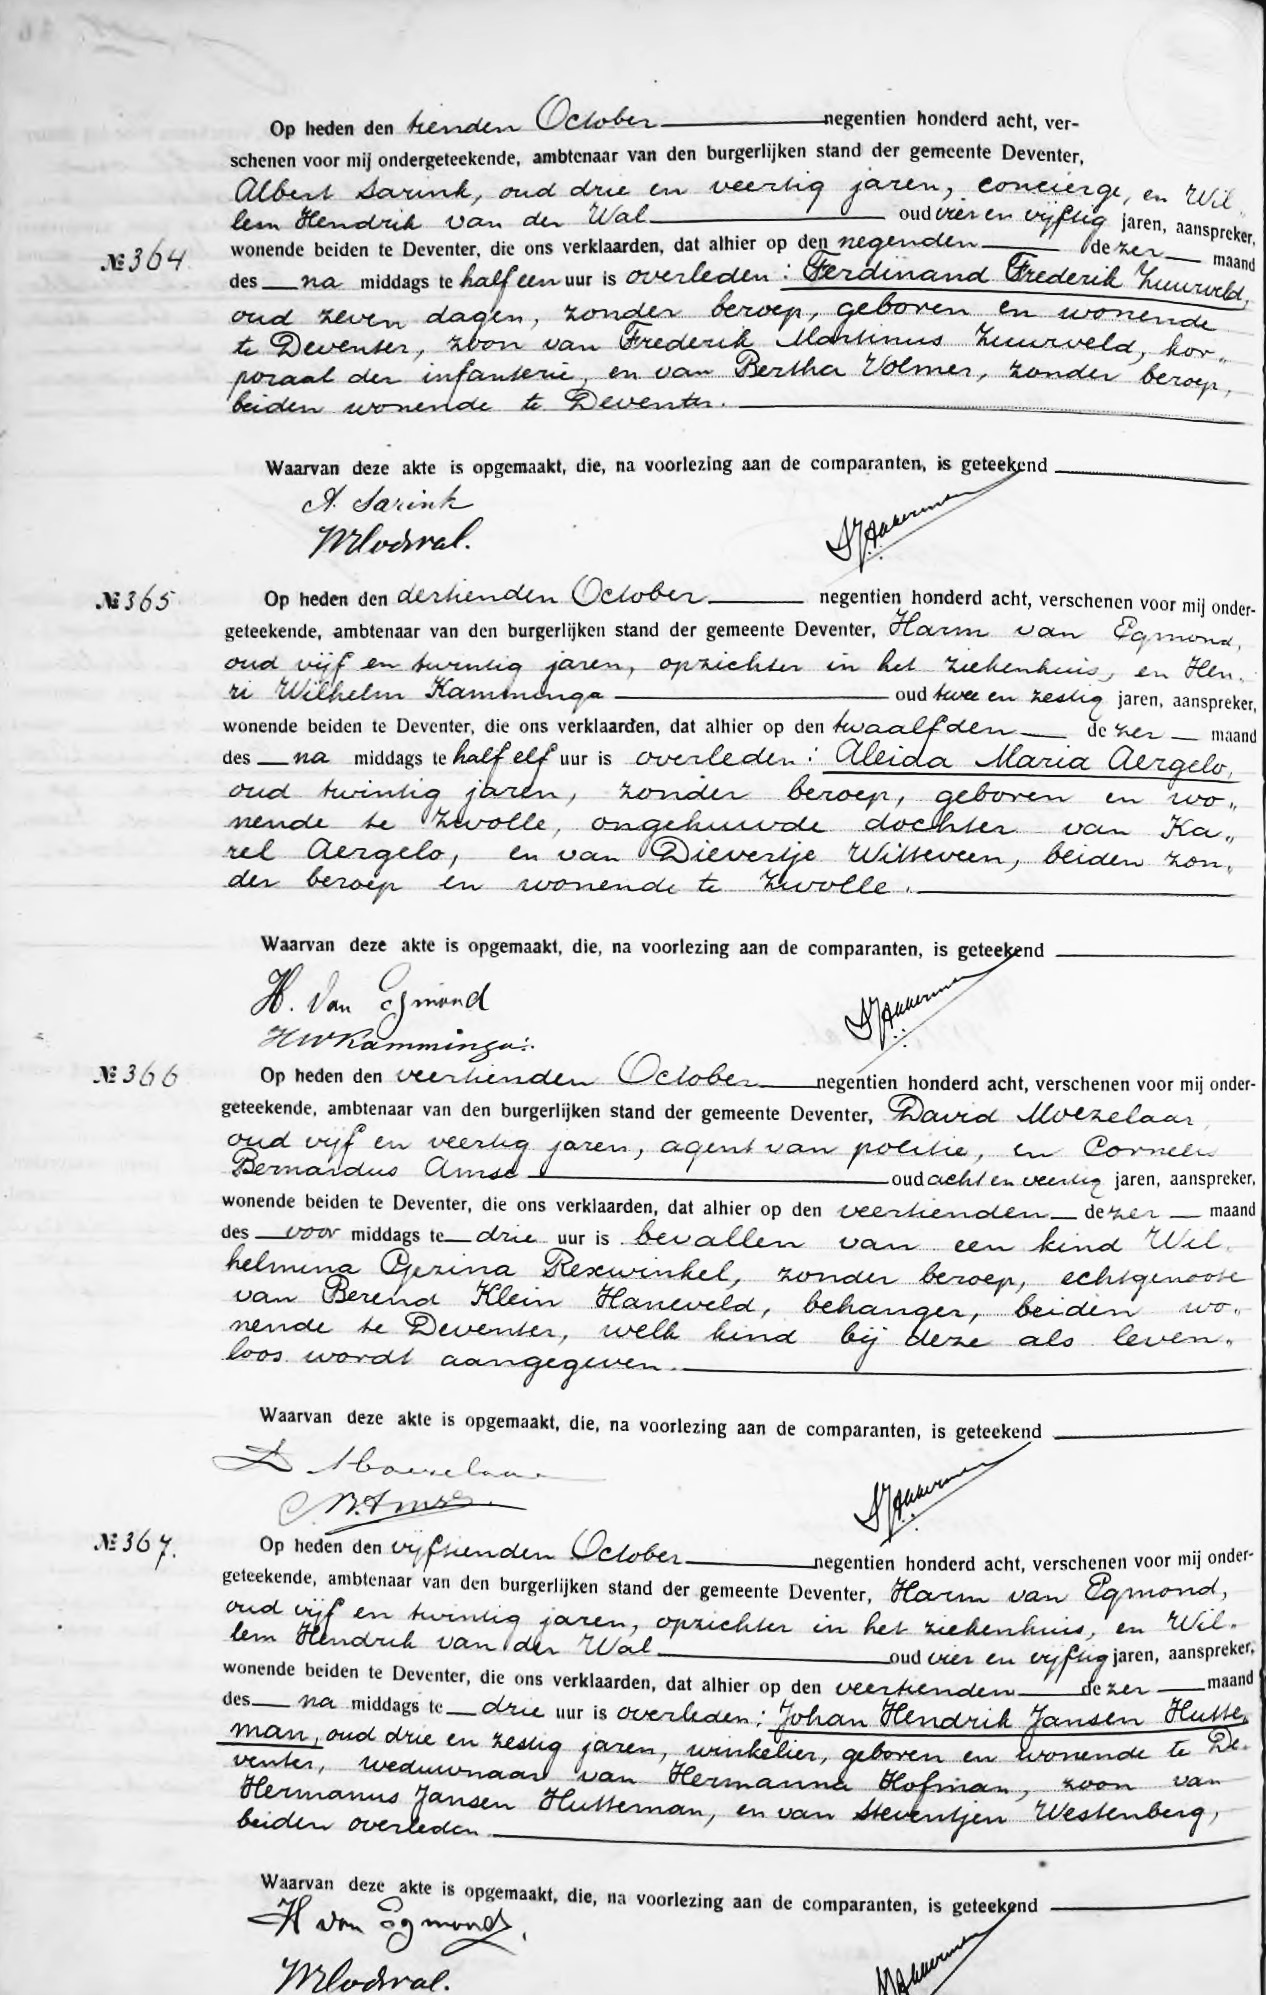 Op heden den tienden October negentien honderd acht, ver-
schenen voor mij ondergeteekende, ambtenaar van den burgerlijken stand der gemeente Deventer,
Albert Sarink, oud drie en veertig jaren, concierge, en Wil„
lem Hendrik van der Wal oud vier en vijftig jaren, aanspreker,
№ 364. wonende beiden te Deventer, die ons verklaarden, dat alhier op den negenden dezer maand
des na middags te half een uur is overleden: Ferdinand Frederik Zuurveld,
oud zeven dagen, zonder beroep, geboren en wonende
te Deventer, zoon van Frederik Martinus Zuurveld, kor„
poraal der infanterie, en van Bertha Volmer, zonder beroep,
beiden wonende te Deventer.
Waarvan deze akte is opgemaakt, die, na voorlezing aan de comparanten, is geteekend
A. Sarink
WHvdWal. Akkerman
№ 365 Op heden den dertienden October negentien honderd acht, verschenen voor mij onder-
geteekende, ambtenaar van den burgerlijken stand der gemeente Deventer, Harm van Egmond,
oud vijf en twintig jaren, opzichter in het ziekenhuis, en Hen„
ri Wilhelm Kamminga oud twee en zestig jaren, aanspreker,
wonende beiden te Deventer, die ons verklaarden, dat alhier op den twaalfden dezer maand
des na middags te half elf uur is overleden: Aleida Maria Aergelo,
oud twintig jaren, zonder beroep, geboren en wo„
nende te Zwolle, ongehuwde dochter van Ka„
rel Aergelo, en van Dievertje Witteveen, beiden zon„
der beroep en wonende te Zwolle.
Waarvan deze akte is opgemaakt, die, na voorlezing aan de comparanten, is geteekend
H. van Egmond
HWKamminga. Akkerman
№ 366 Op heden den veertienden October negentien honderd acht, verschenen voor mij onder-
geteekende, ambtenaar van den burgerlijken stand der gemeente Deventer, David Moezelaar,
oud vijf en veertig jaren, agent van politie, en Cornelis
Bernardus Amse oud acht en veertig jaren, aanspreker,
wonende beiden te Deventer, die ons verklaarden, dat alhier op den veertienden dezer maand
des voor middags te drie uur is bevallen van een kind Wil„
helmina Gezina Rexwinkel, zonder beroep, echtgenoote
van Berend Klein Haneveld, behanger, beiden wo„
nende te Deventer, welk kind bij deze als leven„
loos wordt aangegeven.
Waarvan deze akte is opgemaakt, die, na voorlezing aan de comparanten, is geteekend
D Moezelaar
C.B.Amse Akkerman
№ 367. Op heden den vijftienden October negentien honderd acht, verschenen voor mij onder-
geteekende, ambtenaar van den burgerlijken stand der gemeente Deventer, Harm van Egmond,
oud vijf en twintig jaren, opzichter in het ziekenhuis, en Wil„
lem Hendrik van der Wal oud vier en vijftig jaren, aanspreker,
wonende beiden te Deventer, die ons verklaarden, dat alhier op den veertienden dezer maand
des na middags te drie uur is overleden: Johan Hendrik Jansen Hutte„
man, oud drie en zestig jaren, winkelier, geboren en wonende te De„
venter, weduwnaar van Hermanna Hofman, zoon van
Hermanus Jansen Hutteman, en van Steventjen Westenberg,
beiden overleden
Waarvan deze akte is opgemaakt, die, na voorlezing aan de comparanten, is geteekend
H van Egmond.
WHvdWal. Akkerman